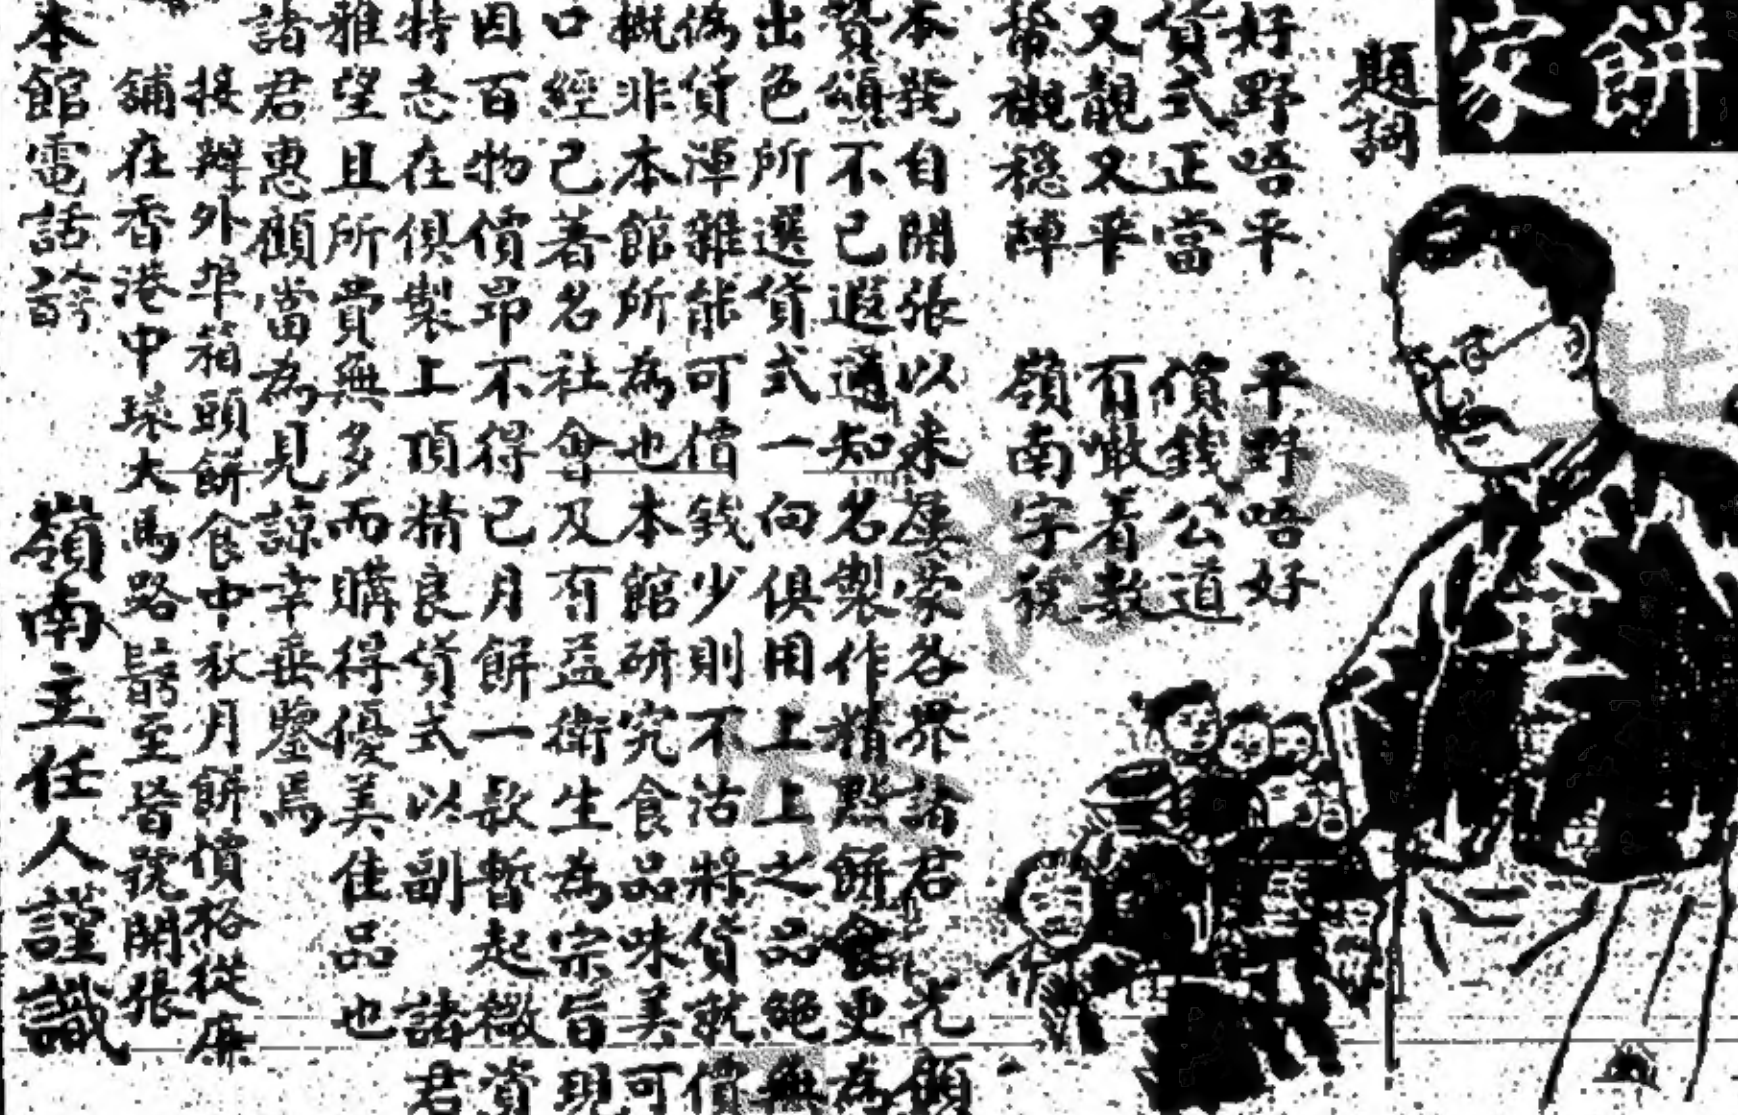 餅家
題詞
好野唔平 平野唔好
貨式正當 價錢公道
又靚又平 有噉着數
幫襯穩陣 嶺南字號
本號自開張以來屢蒙各界諸君 光顧
贊頌不已遐邇知名製作精點餅食更為
出色所選貨式一向俱用上上之品絶無
偽貨渾雜能可價錢少則不沽將貨就價
概非本館所為也本館研究食品味美可
口經已著名社會及有益衛生為宗旨現
因百物價昂不得已月餅一款暫起微資
特志在俱製上頂精良貨式以副 諸君
雅望且所費無多而購得優美佳品也
諸君惠顧當為見諒幸垂鑒焉
接辦外埠箱頭餅食中秋月餅價格從廉
舖在香港中環大馬路 至 號開張
本館電話 嶺南主任人謹識